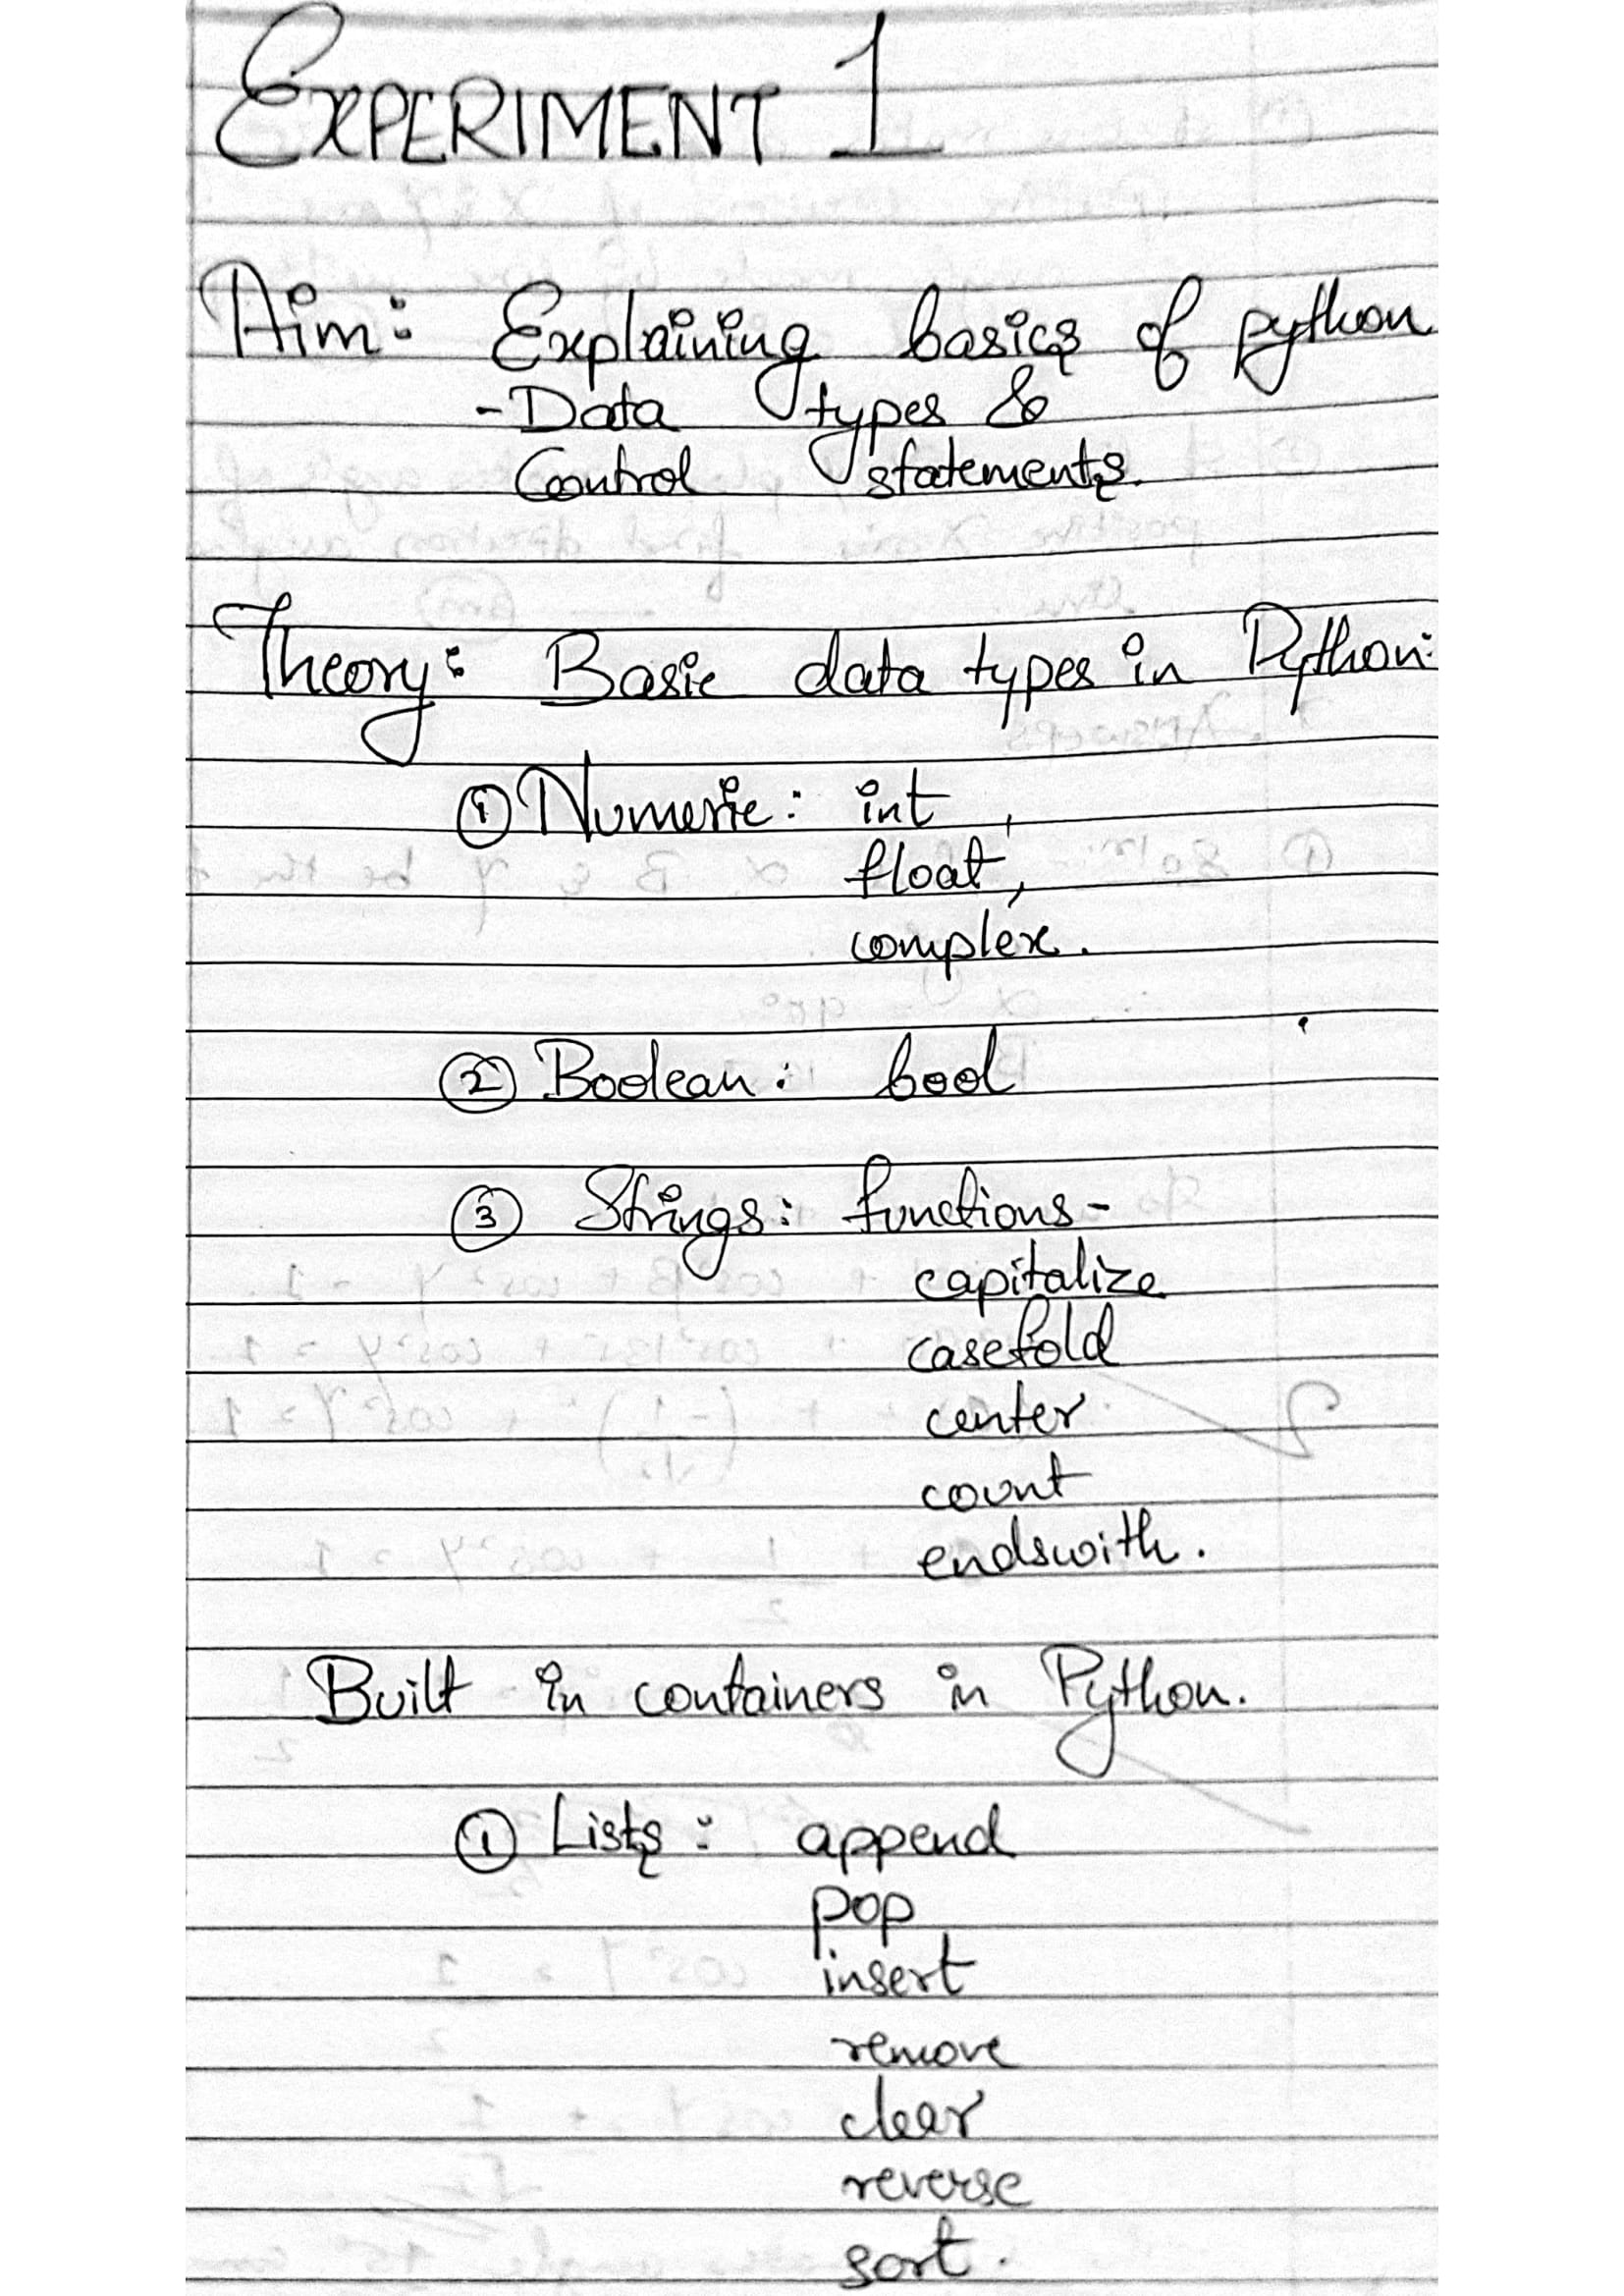 EXPERIMENT 1
Aim: Explaining basics of python
- Data types &
Control statements.
Theory: Basic data types in Python:
① Numeric: int,
float,
complex.
② Boolean: bool
③ Strings: functions -
capitalize
casefold
center
count
endswith.
Built in containers in Python.
① Lists: append
pop
insert
remove
clear
reverse
sort.